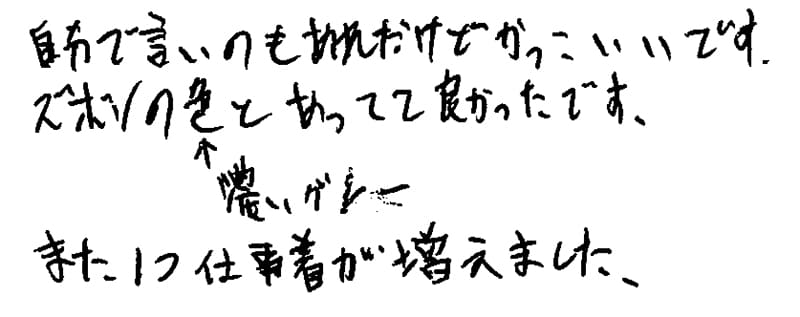 自分で言いのもあれだけどかっこいいです.
ズボンの色とあってて良かったです、
↑
濃いグレー
また1つ仕事着が増えました、